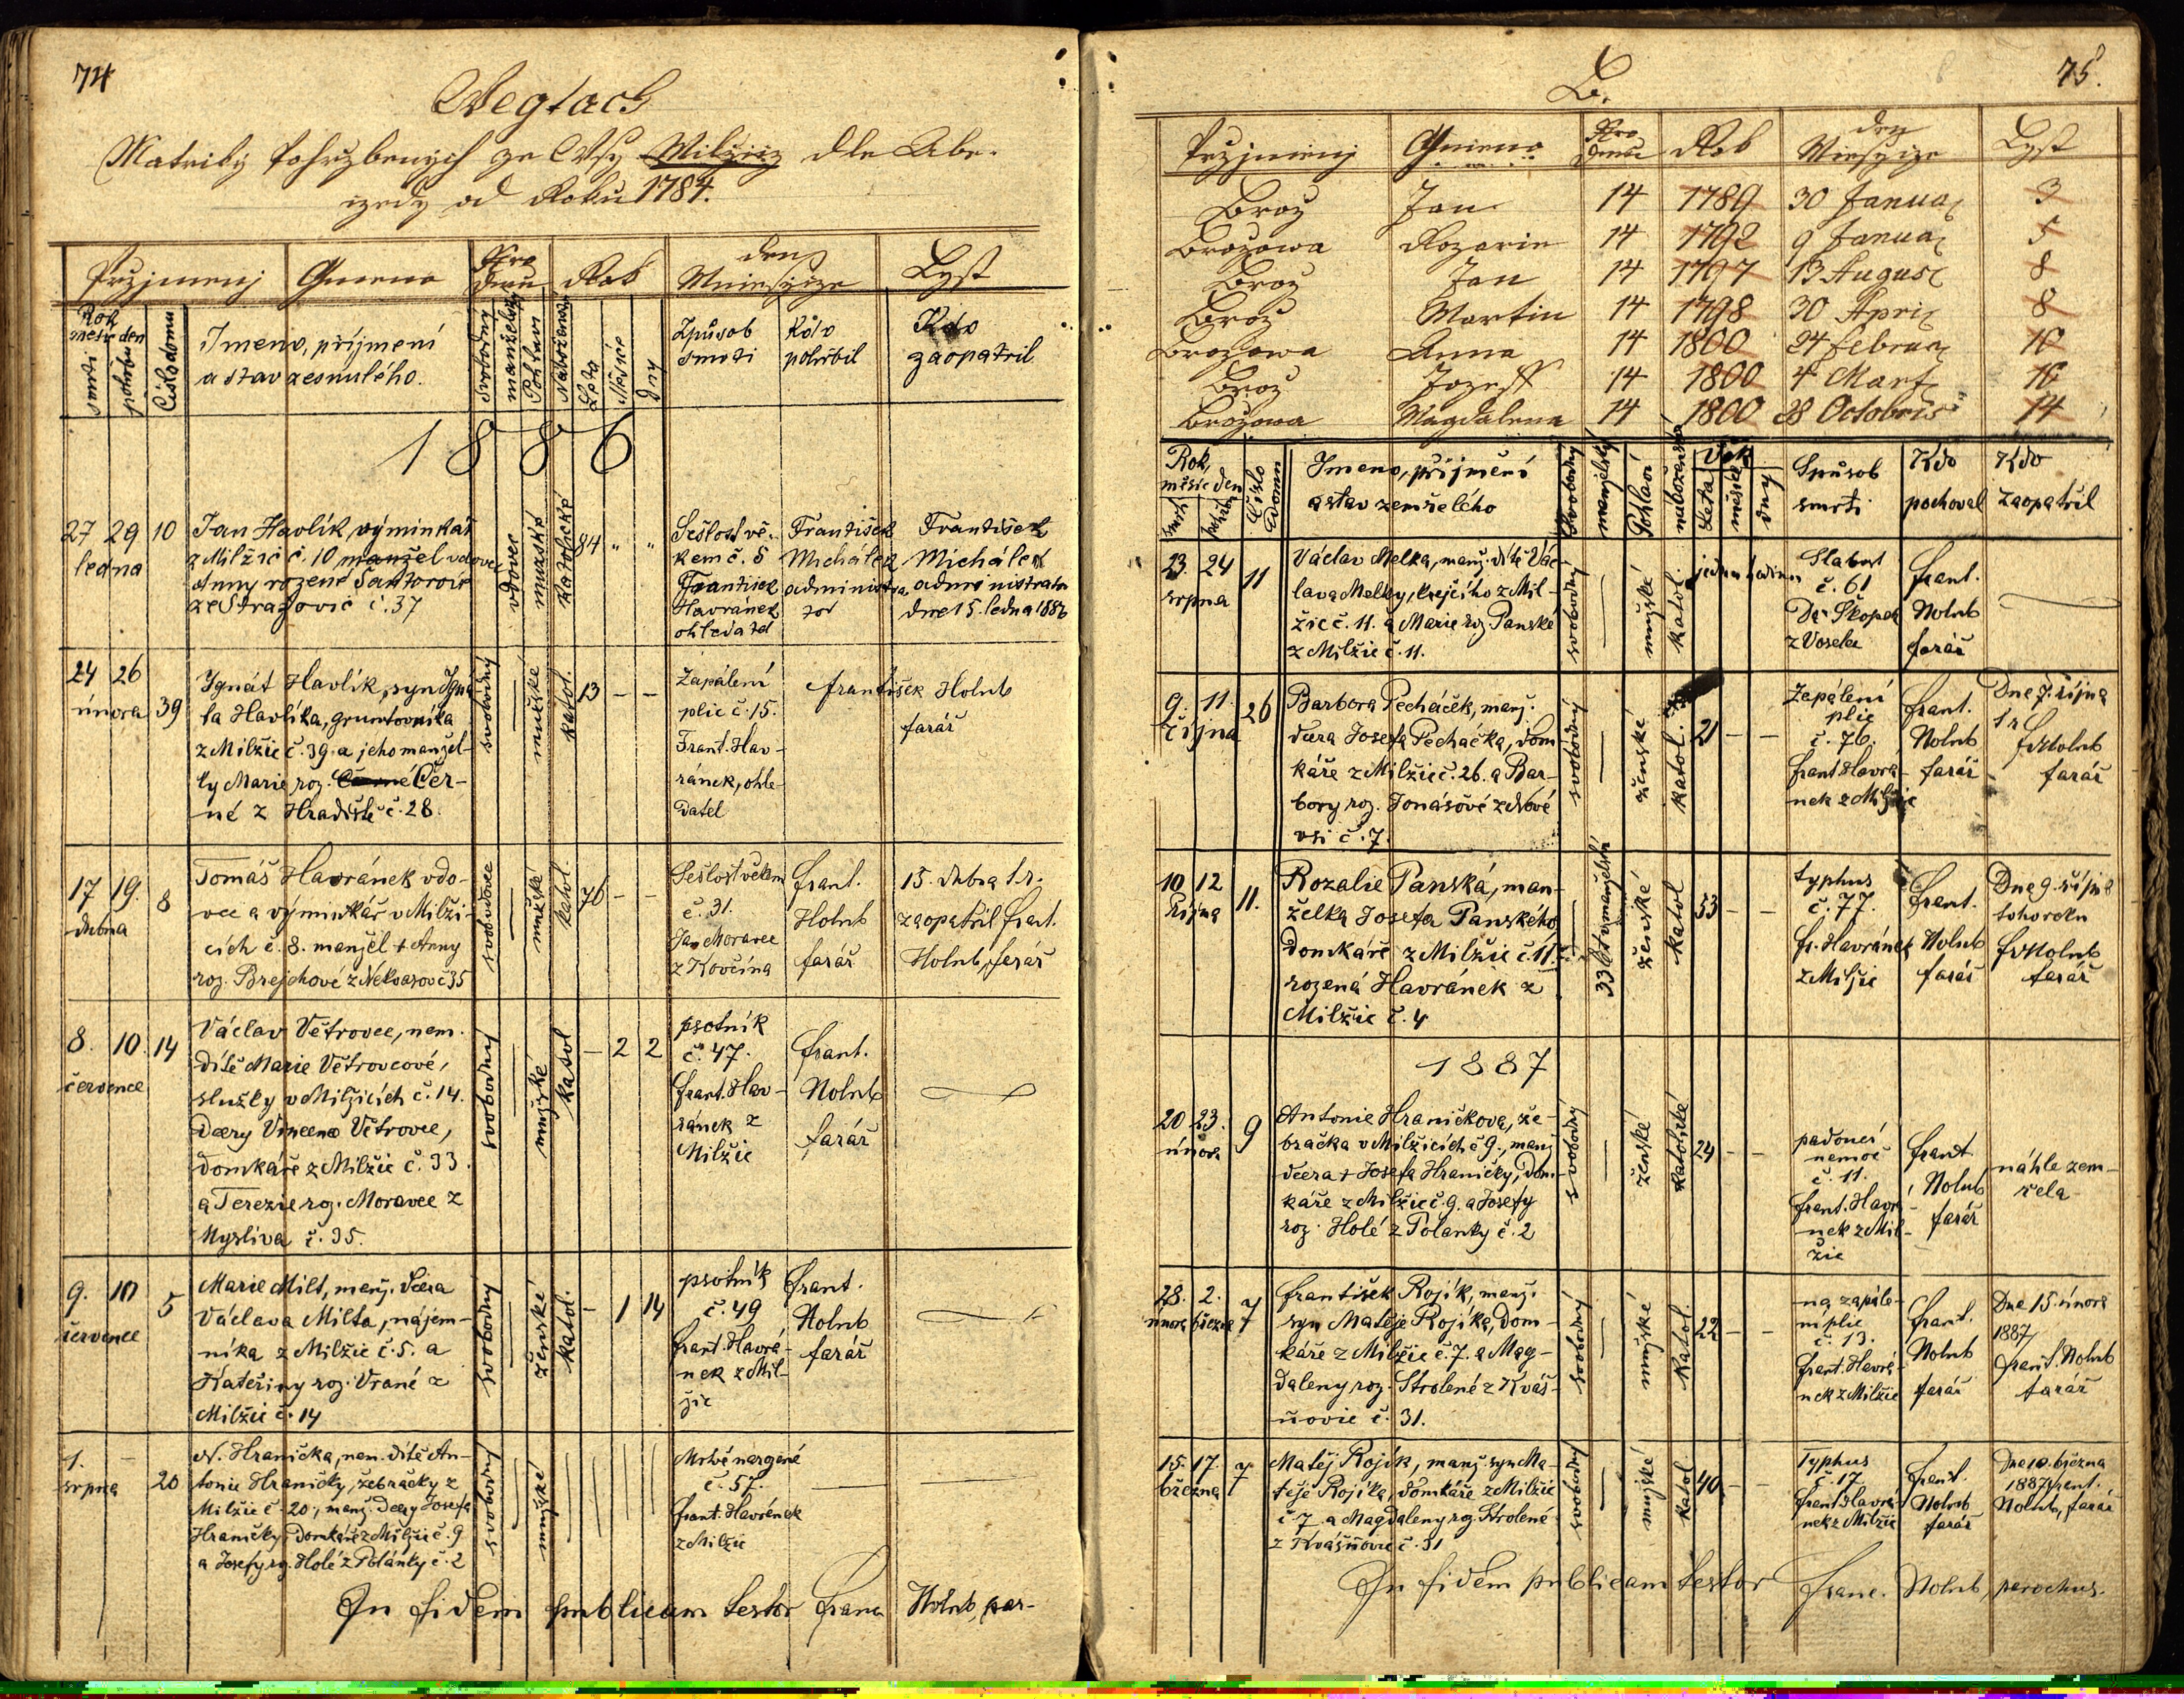 74
Wegtach
Matriky Pohrzbenych ze Wsy Milžicz dle Abe-
czedy od Roku 1784.
Przjmenj Gmeno Čzro Domu Rok den Mniesycze Lyst
Rok
měsíc den
smrti
pohřbu
Číslo domu
Jmeno, příjmení
a stav zesnulého.
Svobodný
manželský
Pohlaví
Náboženst.
Léta
Měsíce
Dny
Způsob
smrti
Kdo
pohřbil
Kdo
zaopatřil
1886
27 29 10
ledna
Jan Havlík, výminkář
z Milžic č. 10 manžel vdovec
Anny rozené Šantorové
ze Stražovic č. 37
vdovec
mužské
katolické
84 " "
Sešlost vě-
kem č. 5
František
Havránek
ohledatel
František
Michálek
administra
tor
František
Michálek
administrator
dne 15. ledna 1886
24 26
února 39
Ignát Havlík, syn Igná-
ta Havlíka, gruntovníka
z Milžic č. 39. a jeho manžel-
ky Marie roz. Černé Čer-
né z Hradiště č. 28.
svobodný
mužské
katol.
13 – –
Zapálení
plic č. 15.
Frant. Hav-
ránek, ohle-
datel
František Holub
farář
17 19. 8
dubna
Tomáš Havránek vdo-
vec a výminkář v Milži-
cích č. 8. manžel + Anny
roz. Brejchové z Nekvasov č 35
vdovec
mužské
katol.
76 – –
Sešlost věkem
č. 31.
Jan Moravec
z Kovčína
Frant.
Holub
farář
15. dubna t. r.
zaopatřil Frant.
Holub, farář
8. 10. 14
července
Václav Větrovec, nem.
dítě Marie Větrovcové,
služky v Milžicích č. 14.
dcery Vincence Větrovec,
domkáře z Milžic č. 33.
a Terezie roz. Moravec z
Mysliva č. 35.
svobodný
mužské
katol
– 2 2
psotník
č. 47.
Frant. Hav-
ránek z
Milžic
Frant.
Holub
farář
9. 10 5
července
Marie Milt, manž. dcera
Václava Milta, nájem-
níka z Milžic č. 5. a
Kateřiny roz. Vrané z
Milžic č. 14
svobodný
ženské
katol.
– 1 14
psotník
č. 49
Frant. Havrá-
nek z Mil-
žic
Frant.
Holub
farář
1. –
srpna 20
N. Hranička, nem. dítě An-
tonie Hraničky, žebračky z
Milžic č. 20, manž. dcery Josefa
Hraničky, domkáře z Milžic č. 9
a Josefy roz. Holé z Polánky č. 2
svobodný
mužské
Mrtvě narozené
č. 57.
Frant. Havránek
z Milžic
In fidem publicam testor Franc Holub, par-
75.
B.
Przjmenj Gmeno Čzro Domu Rok den Miesycze Lyst
Broz Jan 14 1789 30 Januar 3
Brozowa Rozarie 14 1792 9 Januar 5
Broz Jan 14 1797 13 August 8
Broz Martin 14 1798 30 April 8
Brozowa Anna 14 1800 24 Februar 10
Broz Jozeff 14 1800 4 Mart 10
Brozowa Magdalena 14 1800 28 Octobris 14
Rok,
měsíc den
smrti
pohřbu
Číslo
domu
Jmeno, příjmění
a stav zemřelého
Svobodný
manželský
Pohlaví
náboženství
Věk
Leta
měsíce
dny
Spůsob
smrti
Kdo
pochoval
Kdo
zaopatřil
23. 24 11
srpna
Václav Melka, manž. dítě Vác-
lava Melky, krejčího z Mil-
žic č. 11. a Marie roz. Panské
z Milžic č. 11.
svobodný
mužské
katol.
jednu hodinu
Slabost
č. 61
Dr. Škopek
z Voselec
Frant.
Holub
farář
9. 11. 26
října
Barbora Pecháček, manž.
dcera Josefa Pecháčka, dom
káře z Milžic č. 26. a Bar-
bory roz. Jonášové z Nové
vsi č. 7.
svobodný
ženské
katol.
21 – –
Zapálení
plic
č. 76.
Frant Havrá-
nek z Milžic
Frant.
Holub
farář
Dne 7. října
t r
Fr Holub
farář
10 12 11.
října
Rozalie Panská, man-
želka Josefa Panského,
domkáře z Milžic č. 11.
rozená Havránek z
Milžic č. 4
33 let manželství
ženské
katol
53 – –
typhus
č. 77.
Fr. Havránek
z Milžic
Frant.
Holub
farář
Dne 9. října
tohoroku
Fr Holub
farář
1887
20 23. 9
února
Antonie Hraničkova, že-
bračka v Milžicích č 9., manž
dcera + Josefa Hraničky, dom-
káře z Milžic č. 9. a Josefy
roz. Holé z Polanky č. 2
svobodný
ženské
katolické
24 – –
padoucí
nemoc
č. 11.
Frant. Havrá-
nek z Mil-
žic
Frant.
Holub
farář
náhle zem-
řela
28. 2. 7
února března
František Rojík, manž.
syn Matěje Rojíka, dom-
káře z Milžic č. 7. a Mag-
daleny roz. Strolené z Kváš-
ňovic č. 31.
svobodný
mužské
katol.
22 – –
na zapále-
ní plic
č. 13.
Frant. Havrá-
nek z Milžic
Frant.
Holub
farář
Dne 15. února
1887
Frant. Holub
farář
15. 17. 7
března
Matěj Rojík, manž syn Ma-
těje Rojíka, domkáře z Milžic
č 7 a Magdaleny roz. Strolené
z Kvášňovic č. 31
svobodný
mužské
katol
40 – –
Typhus
č. 17
Frant Havrá-
nek z Milžic
Frant.
Holub
farář
Dne 10. března
1887 Frant.
Holub, farář
In fidem publicam testor Franc. Holub, parochus.